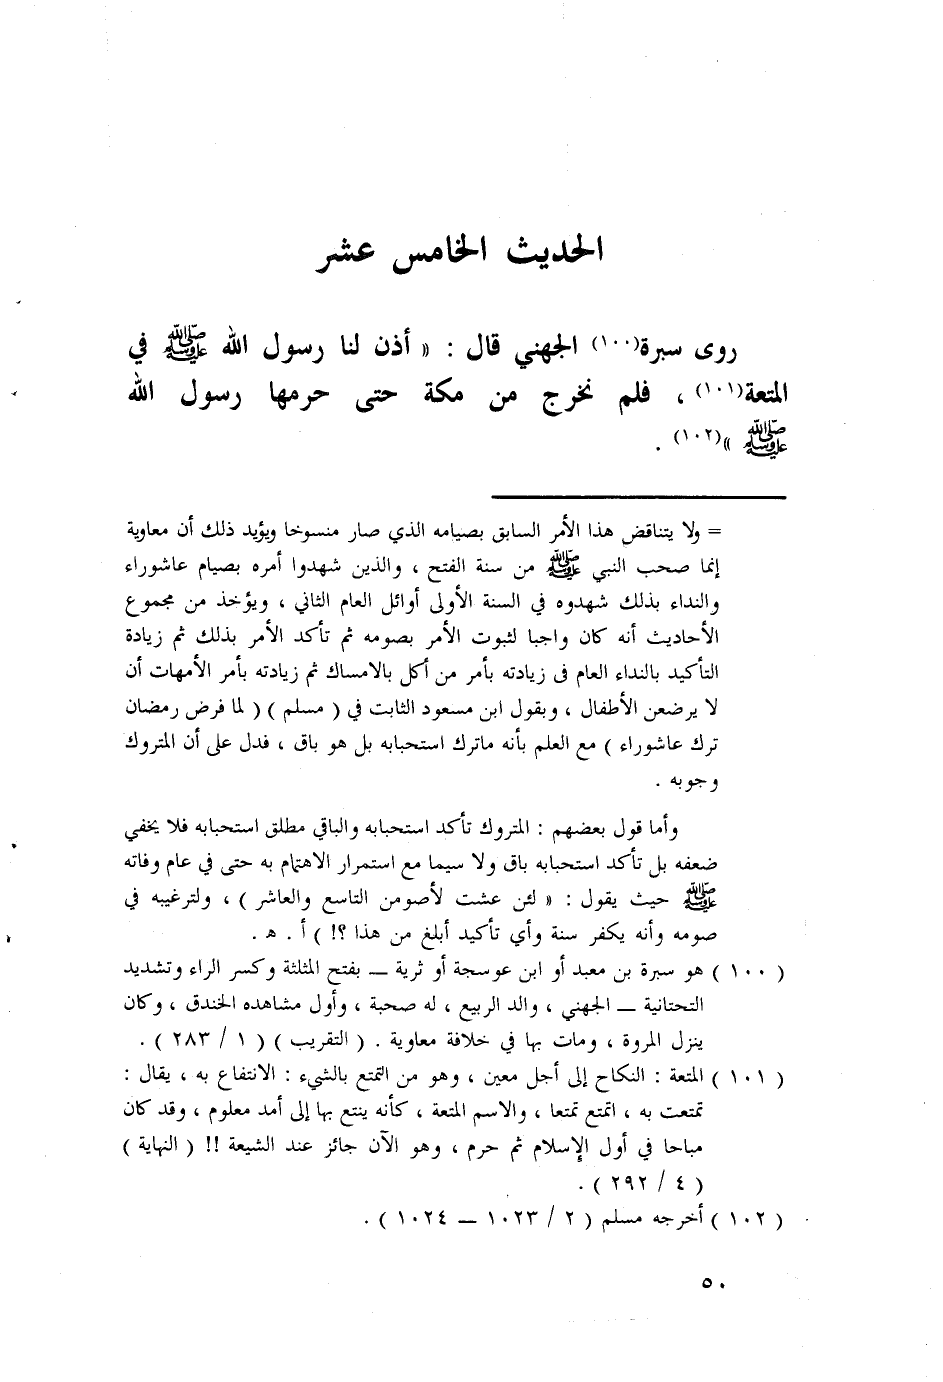 الحديث الخامس عشر
روى سبرة(١٠٠) الجهني قال : « أذن لنا رسول الله ﷺ في
المتعة(١٠١) ، فلم نخرج من مكة حتى حرمها رسول الله
ﷺ »(١٠٢) .
= ولا يتناقض هذا الأمر السابق بصيامه الذي صار منسوخا ويؤيد ذلك أن معاوية
إنما صحب النبي ﷺ من سنة الفتح ، والذين شهدوا أمره بصيام عاشوراء
والنداء بذلك شهدوه في السنة الأولى أوائل العام الثاني ، ويؤخذ من مجموع
الأحاديث أنه كان واجبا لثبوت الأمر بصومه ثم تأكد الأمر بذلك ثم زيادة
التأكيد بالنداء العام فى زيادته بأمر من أكل بالامساك ثم زيادته بأمر الأمهات أن
لا يرضعن الأطفال ، وبقول ابن مسعود الثابت في ( مسلم ) ( لما فرض رمضان
ترك عاشوراء ) مع العلم بأنه ماترك استحبابه بل هو باق ، فدل على أن المتروك
وجوبه .
وأما قول بعضهم : المتروك تأكد استحبابه والباقي مطلق استحبابه فلا يخفي
ضعفه بل تأكد استحبابه باق ولا سيما مع استمرار الاهتمام به حتى في عام وفاته
ﷺ حيث يقول : « لئن عشت لأصومن التاسع والعاشر ) ، ولترغيبه في
صومه وأنه يكفر سنة وأي تأكيد أبلغ من هذا ؟! ) أ . هـ .
( ١٠٠ ) هو سبرة بن معبد أو ابن عوسجة أو ثرية ــ بفتح المثلثة وكسر الراء وتشديد
التحتانية ــ الجهني ، والد الربيع ، له صحبة ، وأول مشاهده الخندق ، وكان
ينزل المروة ، ومات بها في خلافة معاوية . ( التقريب ) ( ١ / ٢٨٣ ) .
( ١٠١ ) المتعة : النكاح إلى أجل معين ، وهو من التمتع بالشيء : الانتفاع به ، يقال :
تمتعت به ، اتمتع تمتعا ، والاسم المتعة ، كأنه ينتع بها إلى أمد معلوم ، وقد كان
مباحا في أول الإسلام ثم حرم ، وهو الآن جائز عند الشيعة !! ( النهاية )
( ٤ / ٢٩٢ ) .
( ١٠٢ ) أخرجه مسلم ( ٢ / ١٠٢٣ ــ ١٠٢٤ ) .
٥٠